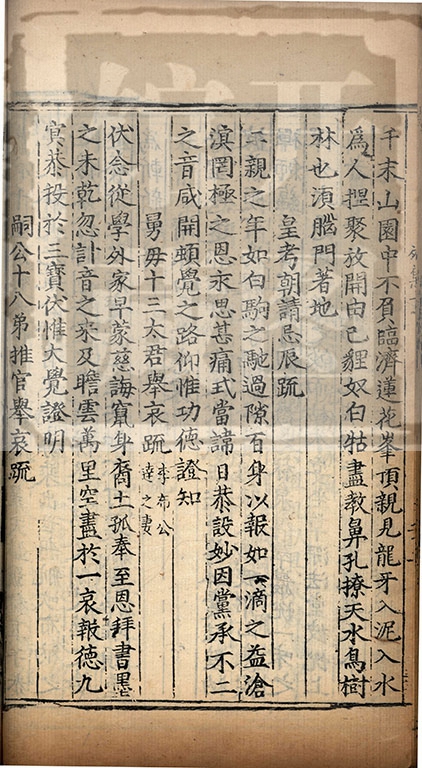 千末山園中不負臨濟蓮花峯頂親見龍牙入泥入水
爲人捏聚放開由己貍奴白牯盡教鼻孔撩天水鳥樹
林也湏腦門著地
皇考朝請忌辰疏
二親之年如白駒之馳過隙百身以報如一滴之益滄
滇罔極之恩永思甚痛式當諱日恭設妙因黨承不二
之音咸開頓覺之路仰惟功德證知
舅毋十三太君舉哀疏李布公達之妻
伏念從學外家早蒙慈誨竄身裔土孤奉至恩拜書墨
之未乾忽訃音之來及瞻雲萬里空盡於一哀報德九
㝠恭投於三寶伏惟大覺證明
嗣公十八弟推官舉哀疏